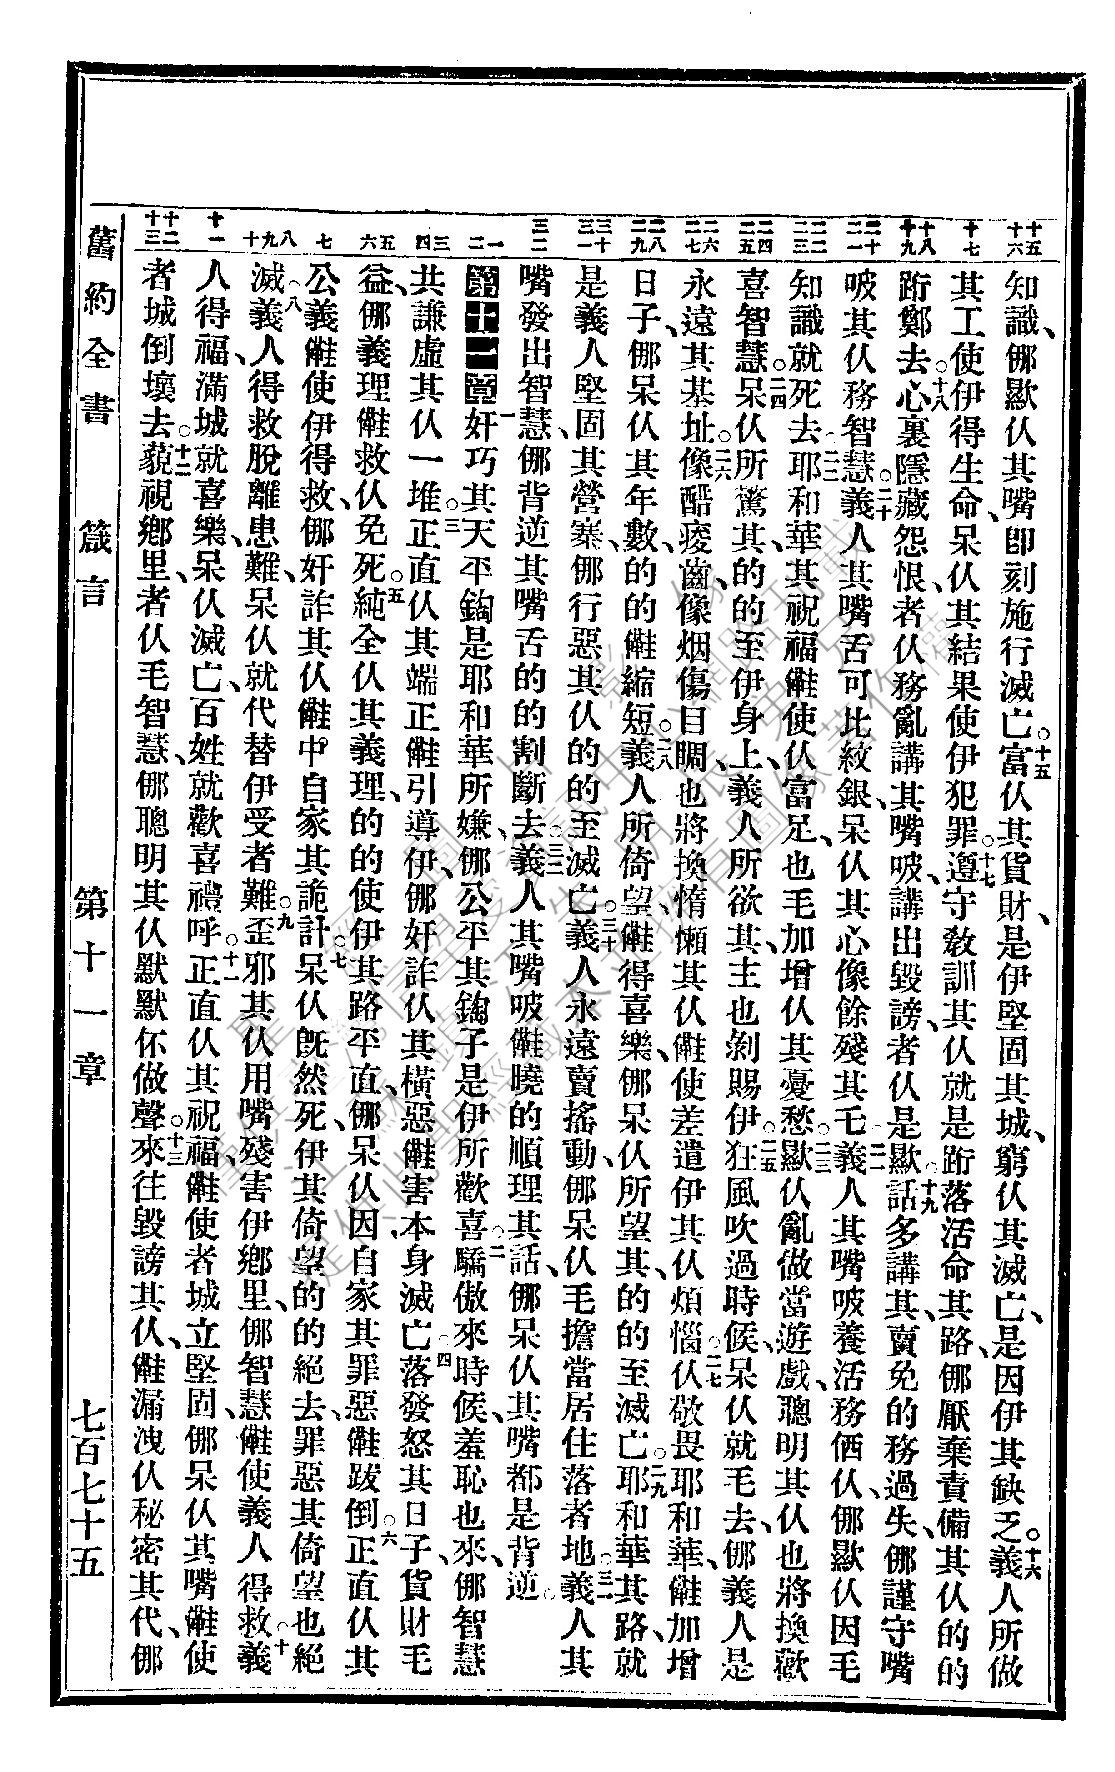 十五 十六 十七 十八 十九 二十 二一 二二 二三 二四 二五 二六 二七 二八 二九 三十 三一 三二 一 二 三 四 五 六 七 八 九 十 十一 十二 十三
知識、㑚歞仸其嘴、卽刻施行滅亡。十五富仸其貨財、是伊堅固其城、窮仸其滅亡、是因伊其缺乏。十六義人所做
其工使伊得生命、呆仸其結果使伊犯罪。十七遵守敎訓其仸就是跲落活命其路、㑚厭棄責備其仸的的
跲鄭去。十八心裏隱藏怨恨者仸務亂講其嘴㕹、講出毀謗者仸是歞話。十九多講其、賣免的務過失、㑚謹守嘴
㕹其仸務智慧。二十義人其嘴舌可比紋銀、呆仸其心像餘殘其乇。二一義人其嘴㕹養活務価仸、㑚歞仸因毛
知識就死去。二二耶和華其祝福𣍐使仸富足、也毛加增仸其憂愁。二三歞仸亂做當遊戲、聰明其仸也將換歡
喜智慧。二四呆仸所驚其、的的至伊身上、義人所欲其、主也剝賜伊。二五狂風吹過時候、呆仸就毛去、㑚義人是
永遠其基址。二六像酷痠齒、像烟傷目睭、也將換惰懶其仸使差遣伊其仸煩惱。二七仸敬畏耶和華、加增
日子、㑚呆仸其年數、的的縮短。二八義人所倚望得喜樂、㑚呆仸所望其、的的至滅亡。二九耶和華其路就
是義人堅固其營寨、㑚行惡其仸的的至滅亡。三十義人永遠賣搖動、㑚呆仸毛擔當居住落者地。三一義人其
嘴發出智慧、㑚背逆其嘴舌的的割斷去。三二義人其嘴㕹曉的順理其話、㑚呆仸其嘴都是背逆。
第十二章一奸巧其天平鉤是耶和華所嫌、㑚公平其鉤子是伊所歡喜。二驕傲來時候、羞恥也來、㑚智慧
共謙虛其仸一堆。三正直仸其端正引導伊、㑚奸詐仸其橫惡害本身滅亡。四落發怒其日子、貨財毛
益、㑚義理救仸免死。五純全仸其義理、的的使伊其路平直、㑚呆仸因自家其罪惡跋倒。六正直仸其
公義使伊得救、㑚奸詐其仸中自家其詭計。七呆仸旣然死、伊其倚望的的絕去、罪惡其倚望也絕
滅。八義人得救脫離患難、呆仸就代替伊受者難。九歪邪其仸用嘴殘害伊鄉里、㑚智慧使義人得救。十義
人得福、滿城就喜樂、呆仸滅亡、百姓就歡喜禮呼。十一正直仸其祝福、使者城立堅固、㑚呆仸其嘴使
者城倒壞去。十二藐視鄉里者仸毛智慧、㑚聰明其仸默默伓做聲。十三來往毀謗其仸、漏洩仸秘密其代、㑚
舊約全書 箴言 第十一章 七百七十五